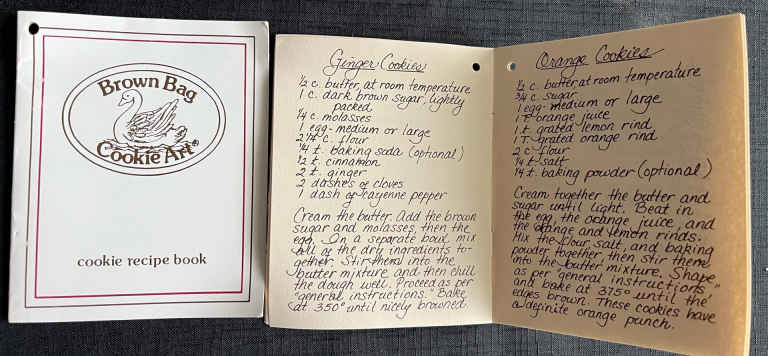 Brown Bag
Cookie Art®
cookie recipe book
Ginger Cookies
½ c. butter, at room temperature
1 c. dark brown sugar, lightly
packed
¼ c. molasses
1 egg - medium or large
2¼ c. flour
¼ t. baking soda (optional)
½ t. cinnamon
2 t. ginger
2 dashes of cloves
1 dash of cayenne pepper
Cream the butter. Add the brown
sugar and molasses, then the
egg. In a separate bowl mix
all of the dry ingredients to-
gether. Stir them into the
butter mixture and then chill
the dough well. Proceed as per
"general instructions." Bake
at 350° until nicely browned.
Orange Cookies
½ c. butter at room temperature
¾ c. sugar
1 egg - medium or large
1 T. orange juice
1 t. grated lemon rind
1 T. grated orange rind
2 c. flour
¼ t. salt
¼ t. baking powder (optional)
Cream together the butter and
sugar until light. Beat in
the egg, the orange juice, and
the orange and lemon rinds.
Mix the flour, salt, and baking
powder together, then stir them
into the butter mixture. Shape
as per "general instructions"
and bake at 375° until the
edges brown. These cookies have
a definite orange punch.